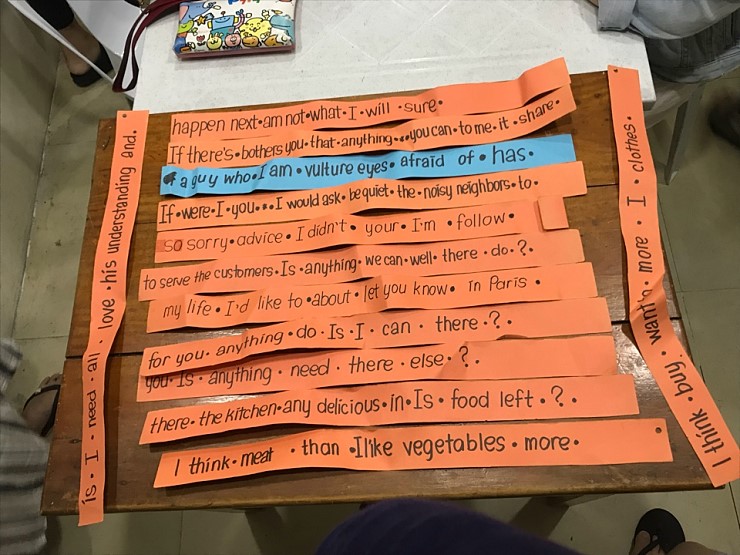 happen next•am not•what•I•will•sure•
If there's•bothers you•that•anything•••you can•to me•it•share•
a guy who•I am•vulture eyes•afraid of•has•
If•were•I•you•••I would ask•be quiet•the•noisy neighbors•to•
so sorry•advice•I didn't•your•I'm•follow•
to serve the customers•Is•anything•we can•well•there•do•?•
my life•I'd like to•about•let you know•in Paris•
for you•anything•do•Is•I•can•there•?•
you•Is•anything•need•there else•?•
there•the kitchen•any delicious•in•Is•food left•?•
I think•meat•than•I like vegetables•more•
is•I•need•all•love•his understanding and•
I think•buy•want to•more•I•clothes•